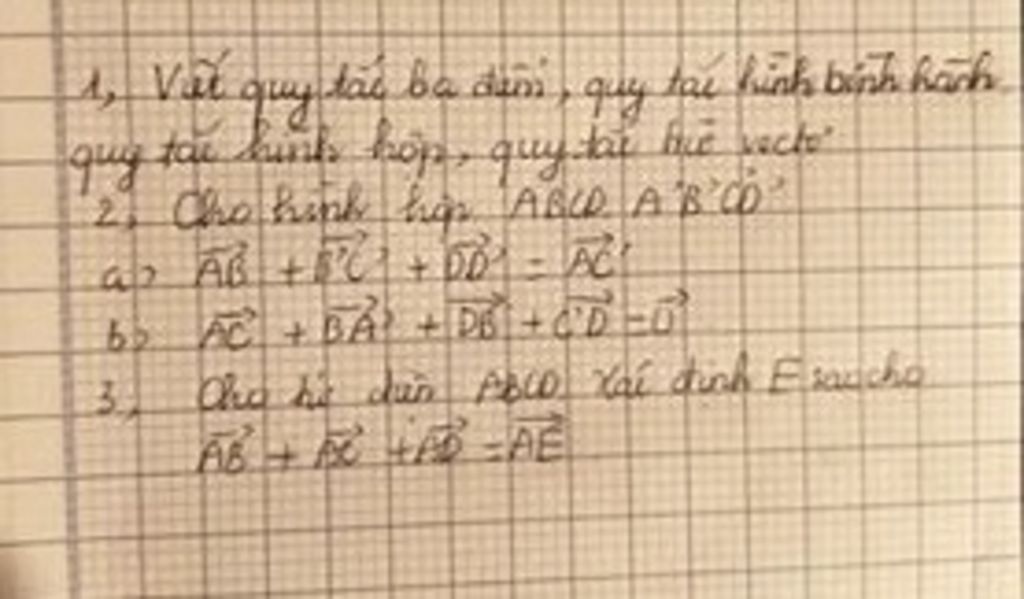 1, Viết quy tắc ba điểm, quy tắc hình bình hành
quy tắc hình hộp, quy tắc trừ vectơ
2, Cho hình hộp ABCD A'B'C'D'
a> AB + B'C' + DD' = AC'
b> AC + BA' + DB + C'D = 0
3, Cho tứ diện ABCD Xác định E sao cho
AB + AC + AD = AE